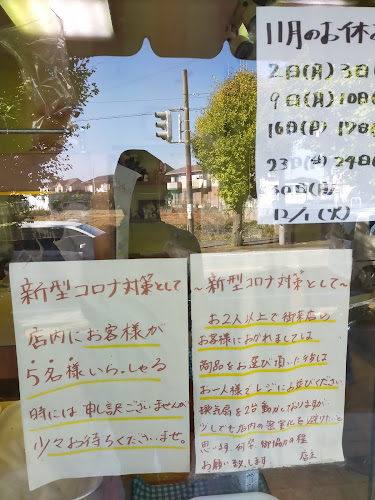 11月のお休み
2日(月) 3日(
9日(月) 10日(
16日(月) 17日(
23日(月) 24日(
30日(月)
12/1(火)
新型コロナ対策として
店内にお客様が
5名様いらっしゃる
時には申し訳ございませんが
少々お待ちくださいませ。
~新型コロナ対策として~
お2人以上で御来店の
お客様におかれましては
商品をお選び頂いた後は
お一人様でレジにお並びください
換気扇を2台動かしておりますが
少しでも店内の密室化を避けたいと
思います。何卒御協力の程
お願い致します。 店主